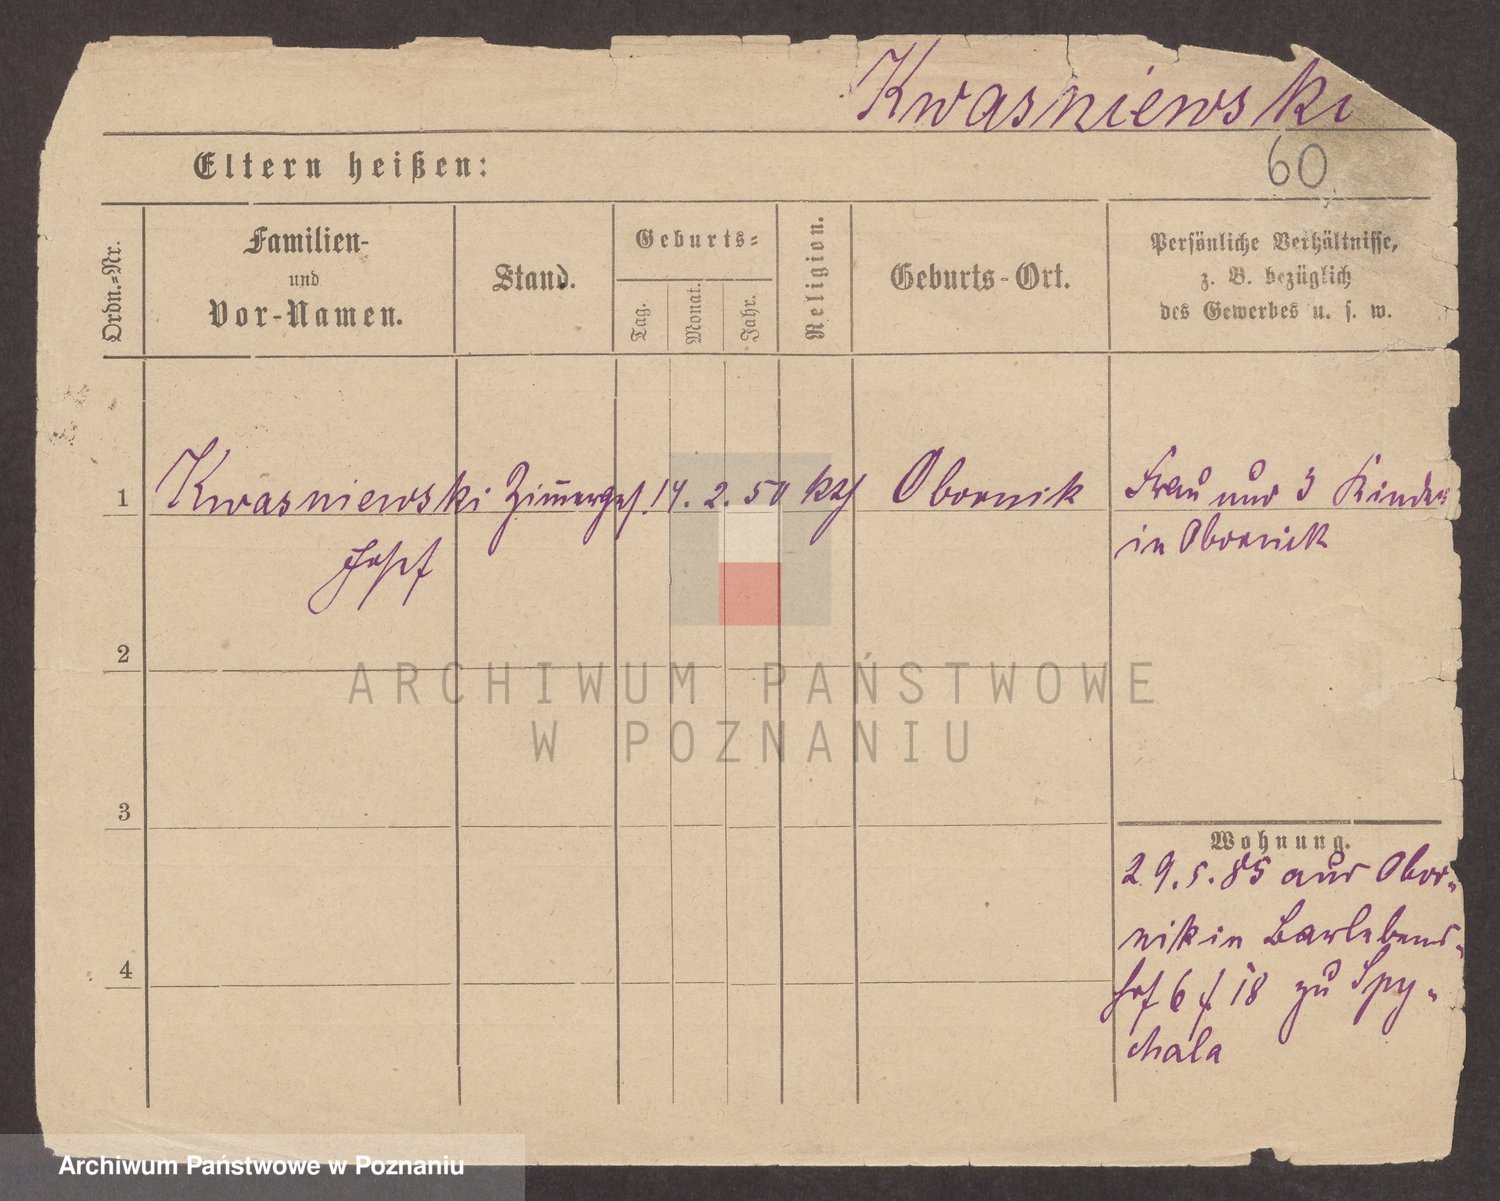 Kwasniewski
Eltern heißen:
60
Ordn.-Nr.
Familien-
und
Vor-Namen.
Stand.
Geburts-
Tag.
Monat.
Jahr.
Religion.
Geburts-Ort.
Persönliche Verhältnisse,
z. B. bezüglich
des Gewerbes u. s. w.
1 Kwasniewski Zimerges. 14. 2. 50 kth Obornik Frau und 3 Kinder
Josef
in Obornick
2
ARCHIWUM PAŃSTWOWE
W POZNANIU
3
Wohnung.
29.5.85 aus Obor-
nik in Barlebens-
4
hof 6 f 18 zu Spy-
chala
Archiwum Państwowe w Poznaniu